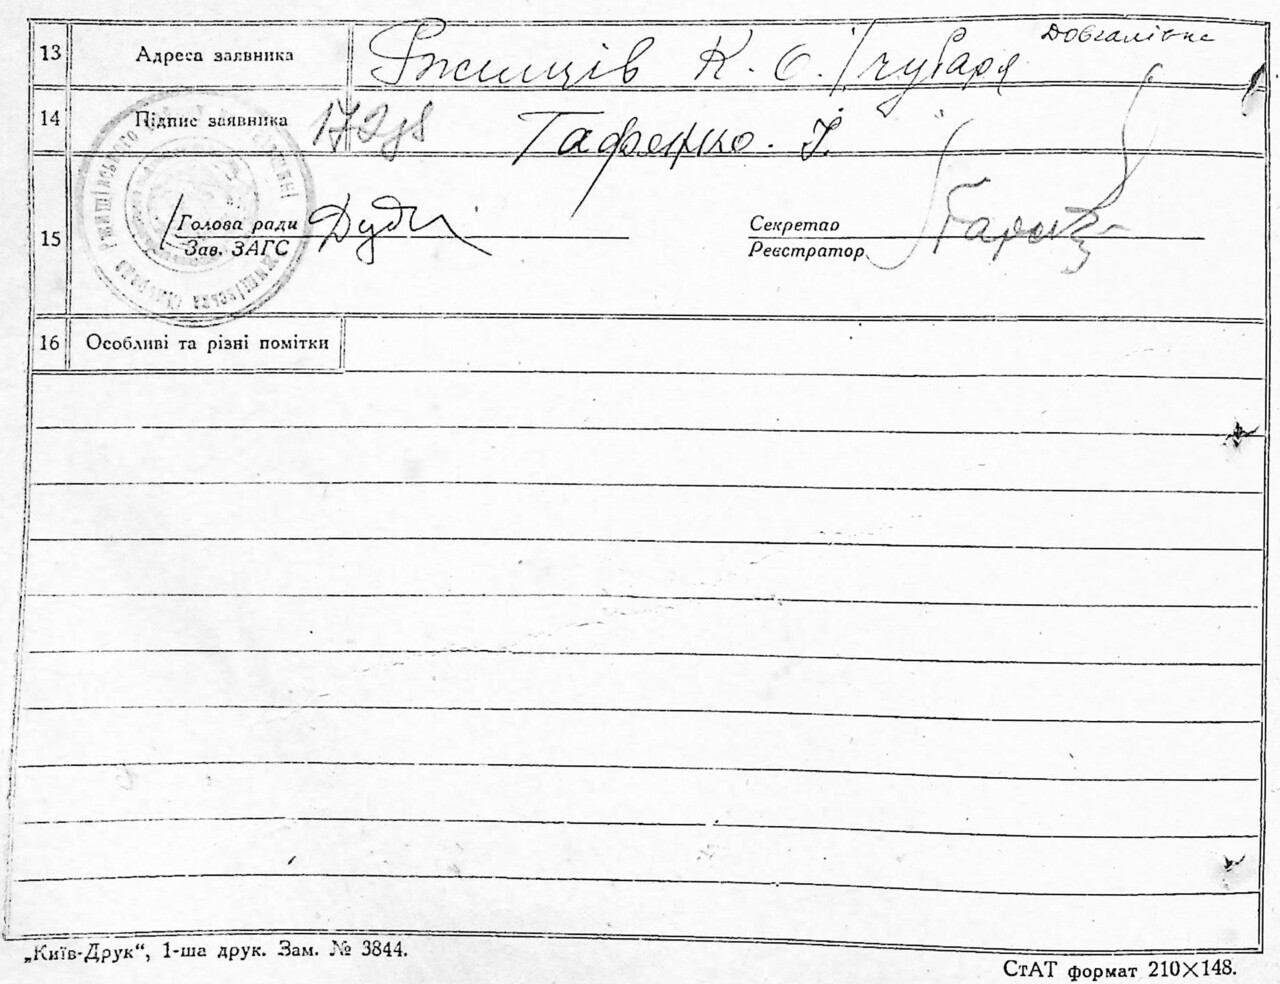 Довгалівка
13 Адреса заявника Ржищів К. О. Чубаря
14 Підпис заявника Гафенко. І.
15 Голова ради
Зав. ЗАГС
Секретар
Реєстратор
16 Особливі та різні помітки
„Київ-Друк“, 1-ша друк. Зам. № 3844.
СтАТ формат 210×148.